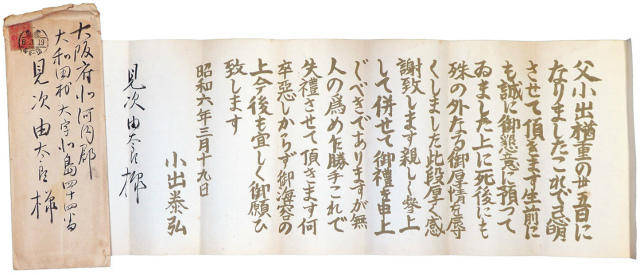 大阪府北河内郡
大和田村大字北島四十四番
見次由太良様
父小出楢重の卅五日に
なりましたこれで忌明
させて頂きます生前に
も誠に御懇意に預つて
ゐました上に死後にも
殊の外なる御厚情を辱
くしました此段厚く感
謝致します親しく參上
して併せて御禮を申上
べきでありますが無
人の爲め乍勝手これで
失禮させて頂きます何
卒惡しからず御海容の
上今後も宜しく御願ひ
致します
昭和六年三月十九日
小出泰弘
見次由太良様